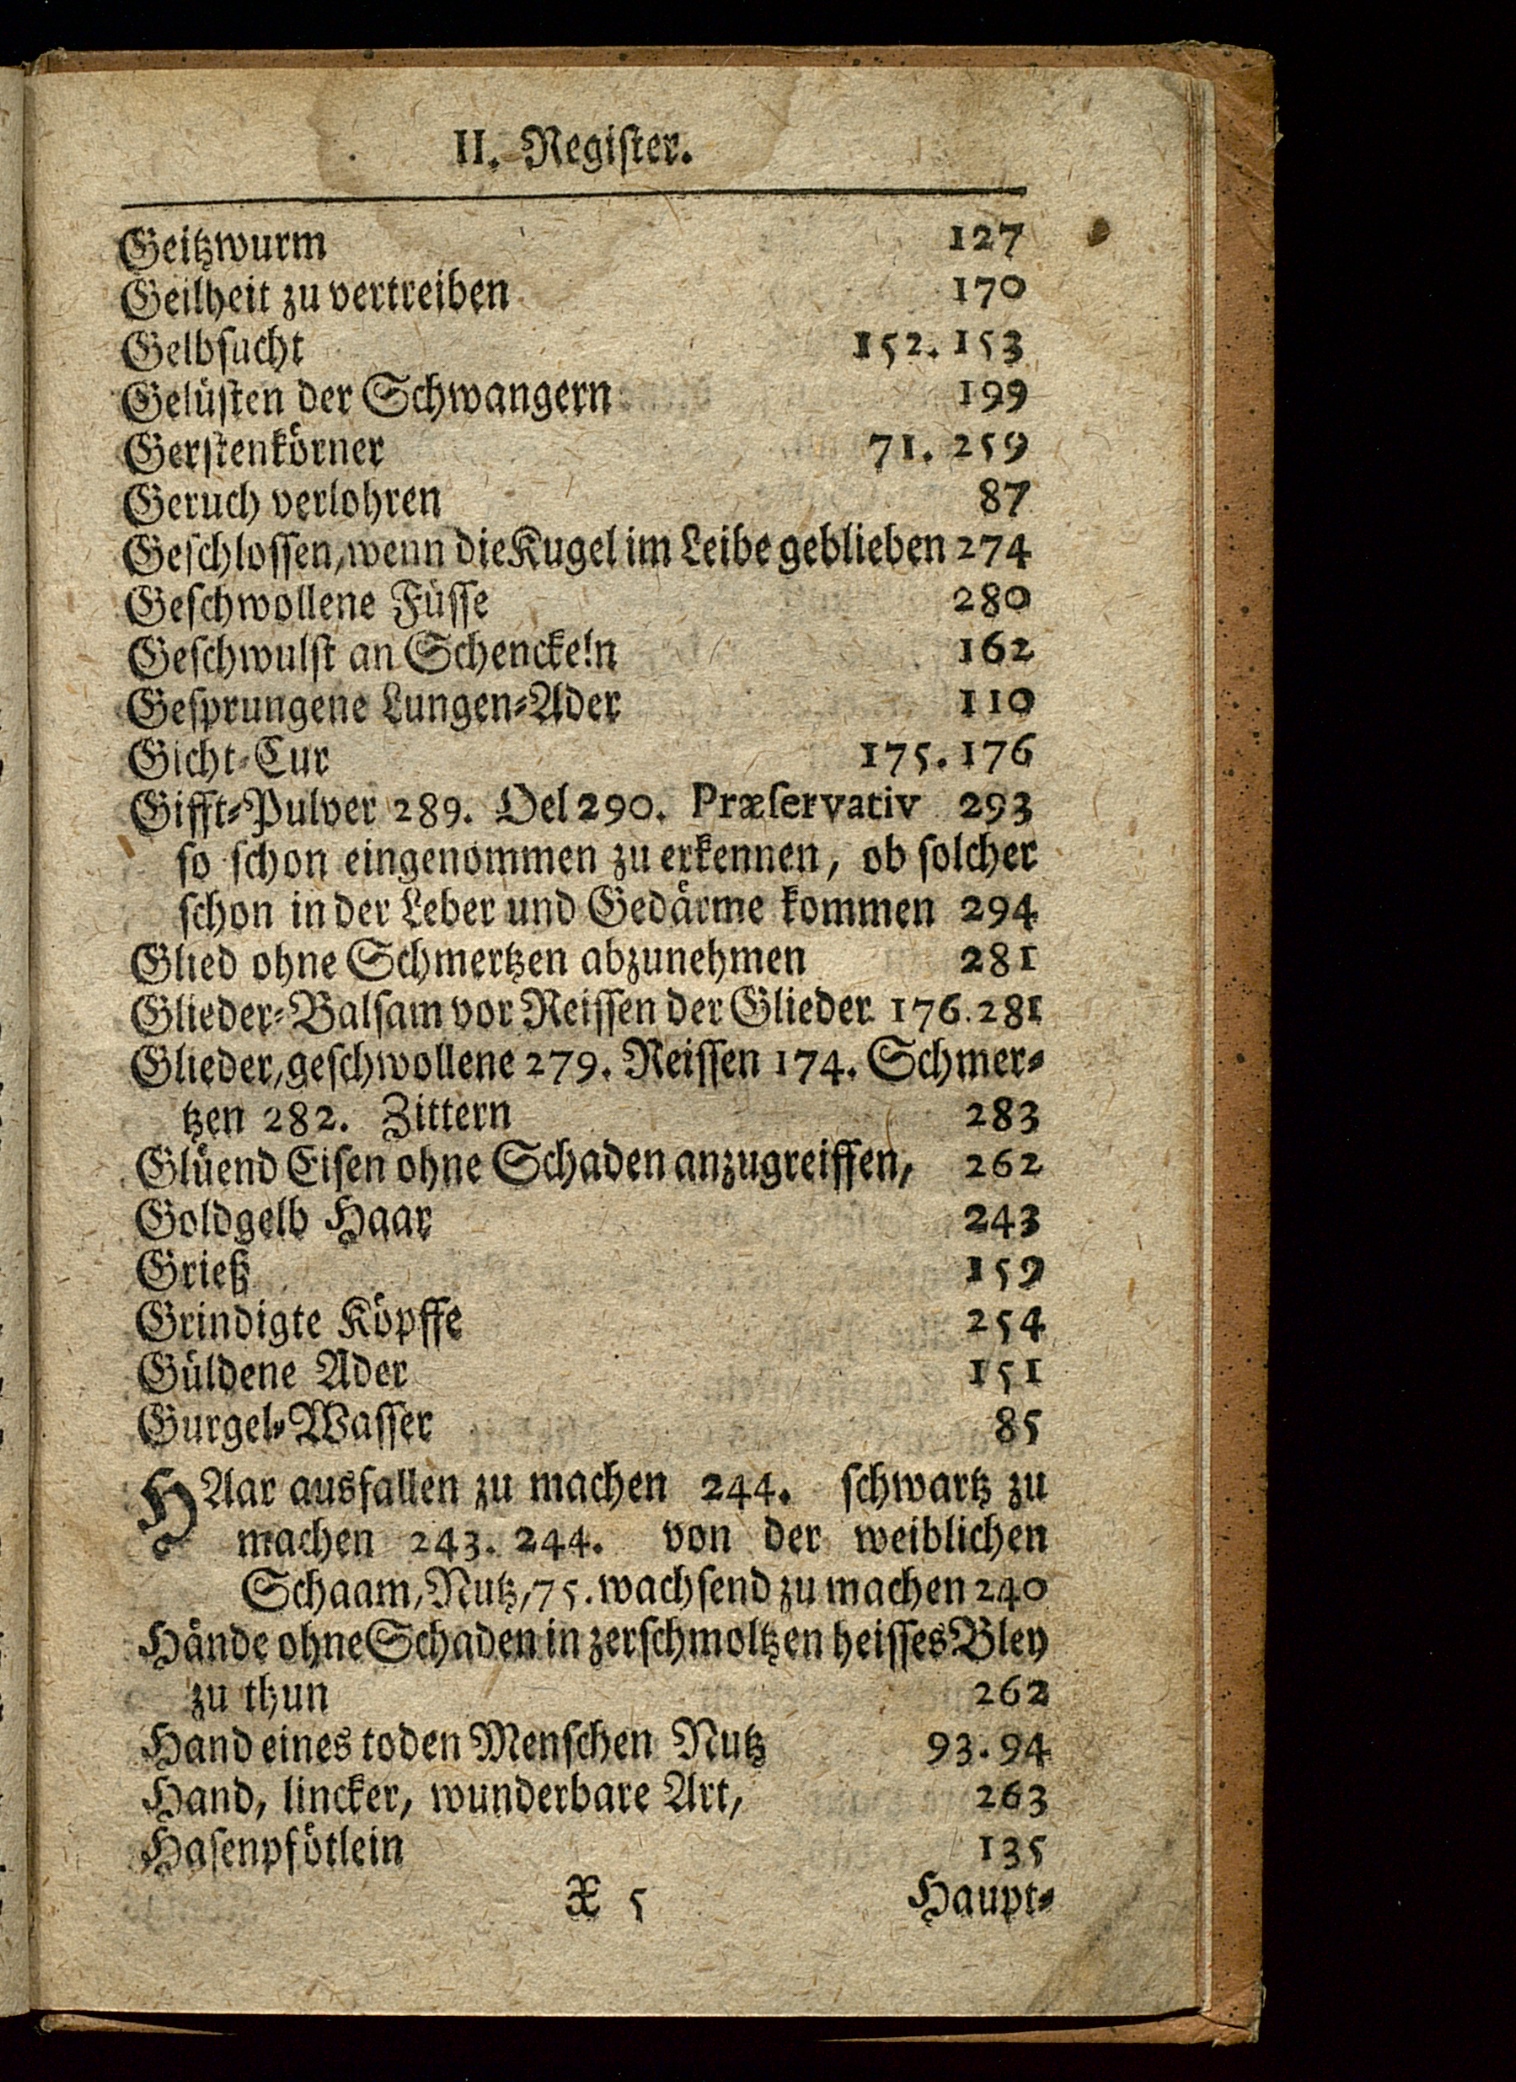 II. Regiſter.
Geitzwurm 127
Geilheit zu vertreiben 170
Gelbſucht 152. 153
Gelüſten der Schwangern 199
Gerſtenkörner 71. 259
Geruch verlohren 87
Geſchloſſen, wenn die Kugel im Leibe geblieben 274
Geſchwollene Füſſe 280
Geſchwulſt an Schenckeln 162
Geſprungene Lungen-Ader 110
Gicht-Cur 175. 176
Gifft-Pulver 289. Oel 290. Præſervativ 293
ſo ſchon eingenommen zu erkennen, ob ſolcher
ſchon in der Leber und Gedärme kommen 294
Glied ohne Schmertzen abzunehmen 281
Glieder-Balſam vor Reiſſen der Glieder 176. 281
Glieder, geſchwollene 279. Reiſſen 174. Schmer-
tzen 282. Zittern 283
Glüend Eiſen ohne Schaden anzugreiffen, 262
Goldgelb Haar 243
Grieß 159
Grindigte Köpffe 254
Güldene Ader 151
Gurgel-Waſſer 85
HAar ausfallen zu machen 244. ſchwartz zu
machen 243. 244. von der weiblichen
Schaam, Nutz, 75. wachſend zu machen 240
Hände ohne Schaden in zerſchmoltzen heiſſes Bley
zu thun 262
Hand eines toden Menſchen Nutz 93. 94
Hand, lincker, wunderbare Art, 263
Haſenpfötlein 135
X 5 Haupt-